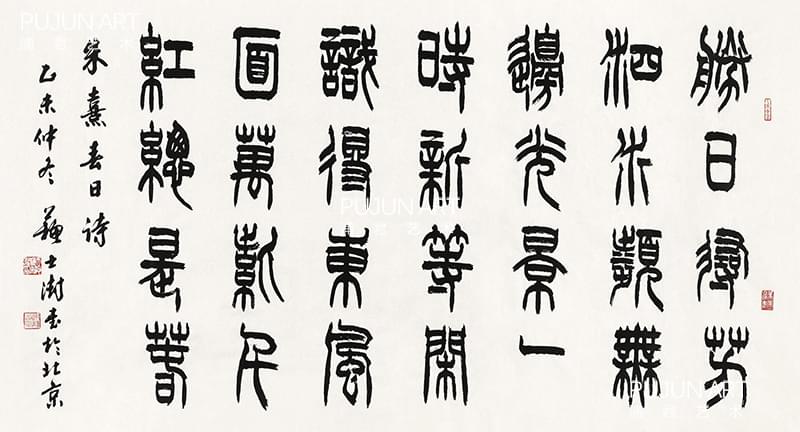 勝日尋芳
泗水濱無
邊光景一
時新等閑
識得東風
面萬紫千
紅總是春
朱熹春日詩
乙未仲冬 蘇士澍書於北京
PUJUN ART
浦君艺术
PUJUN ART
浦君艺术
PUJUN ART
浦君艺术